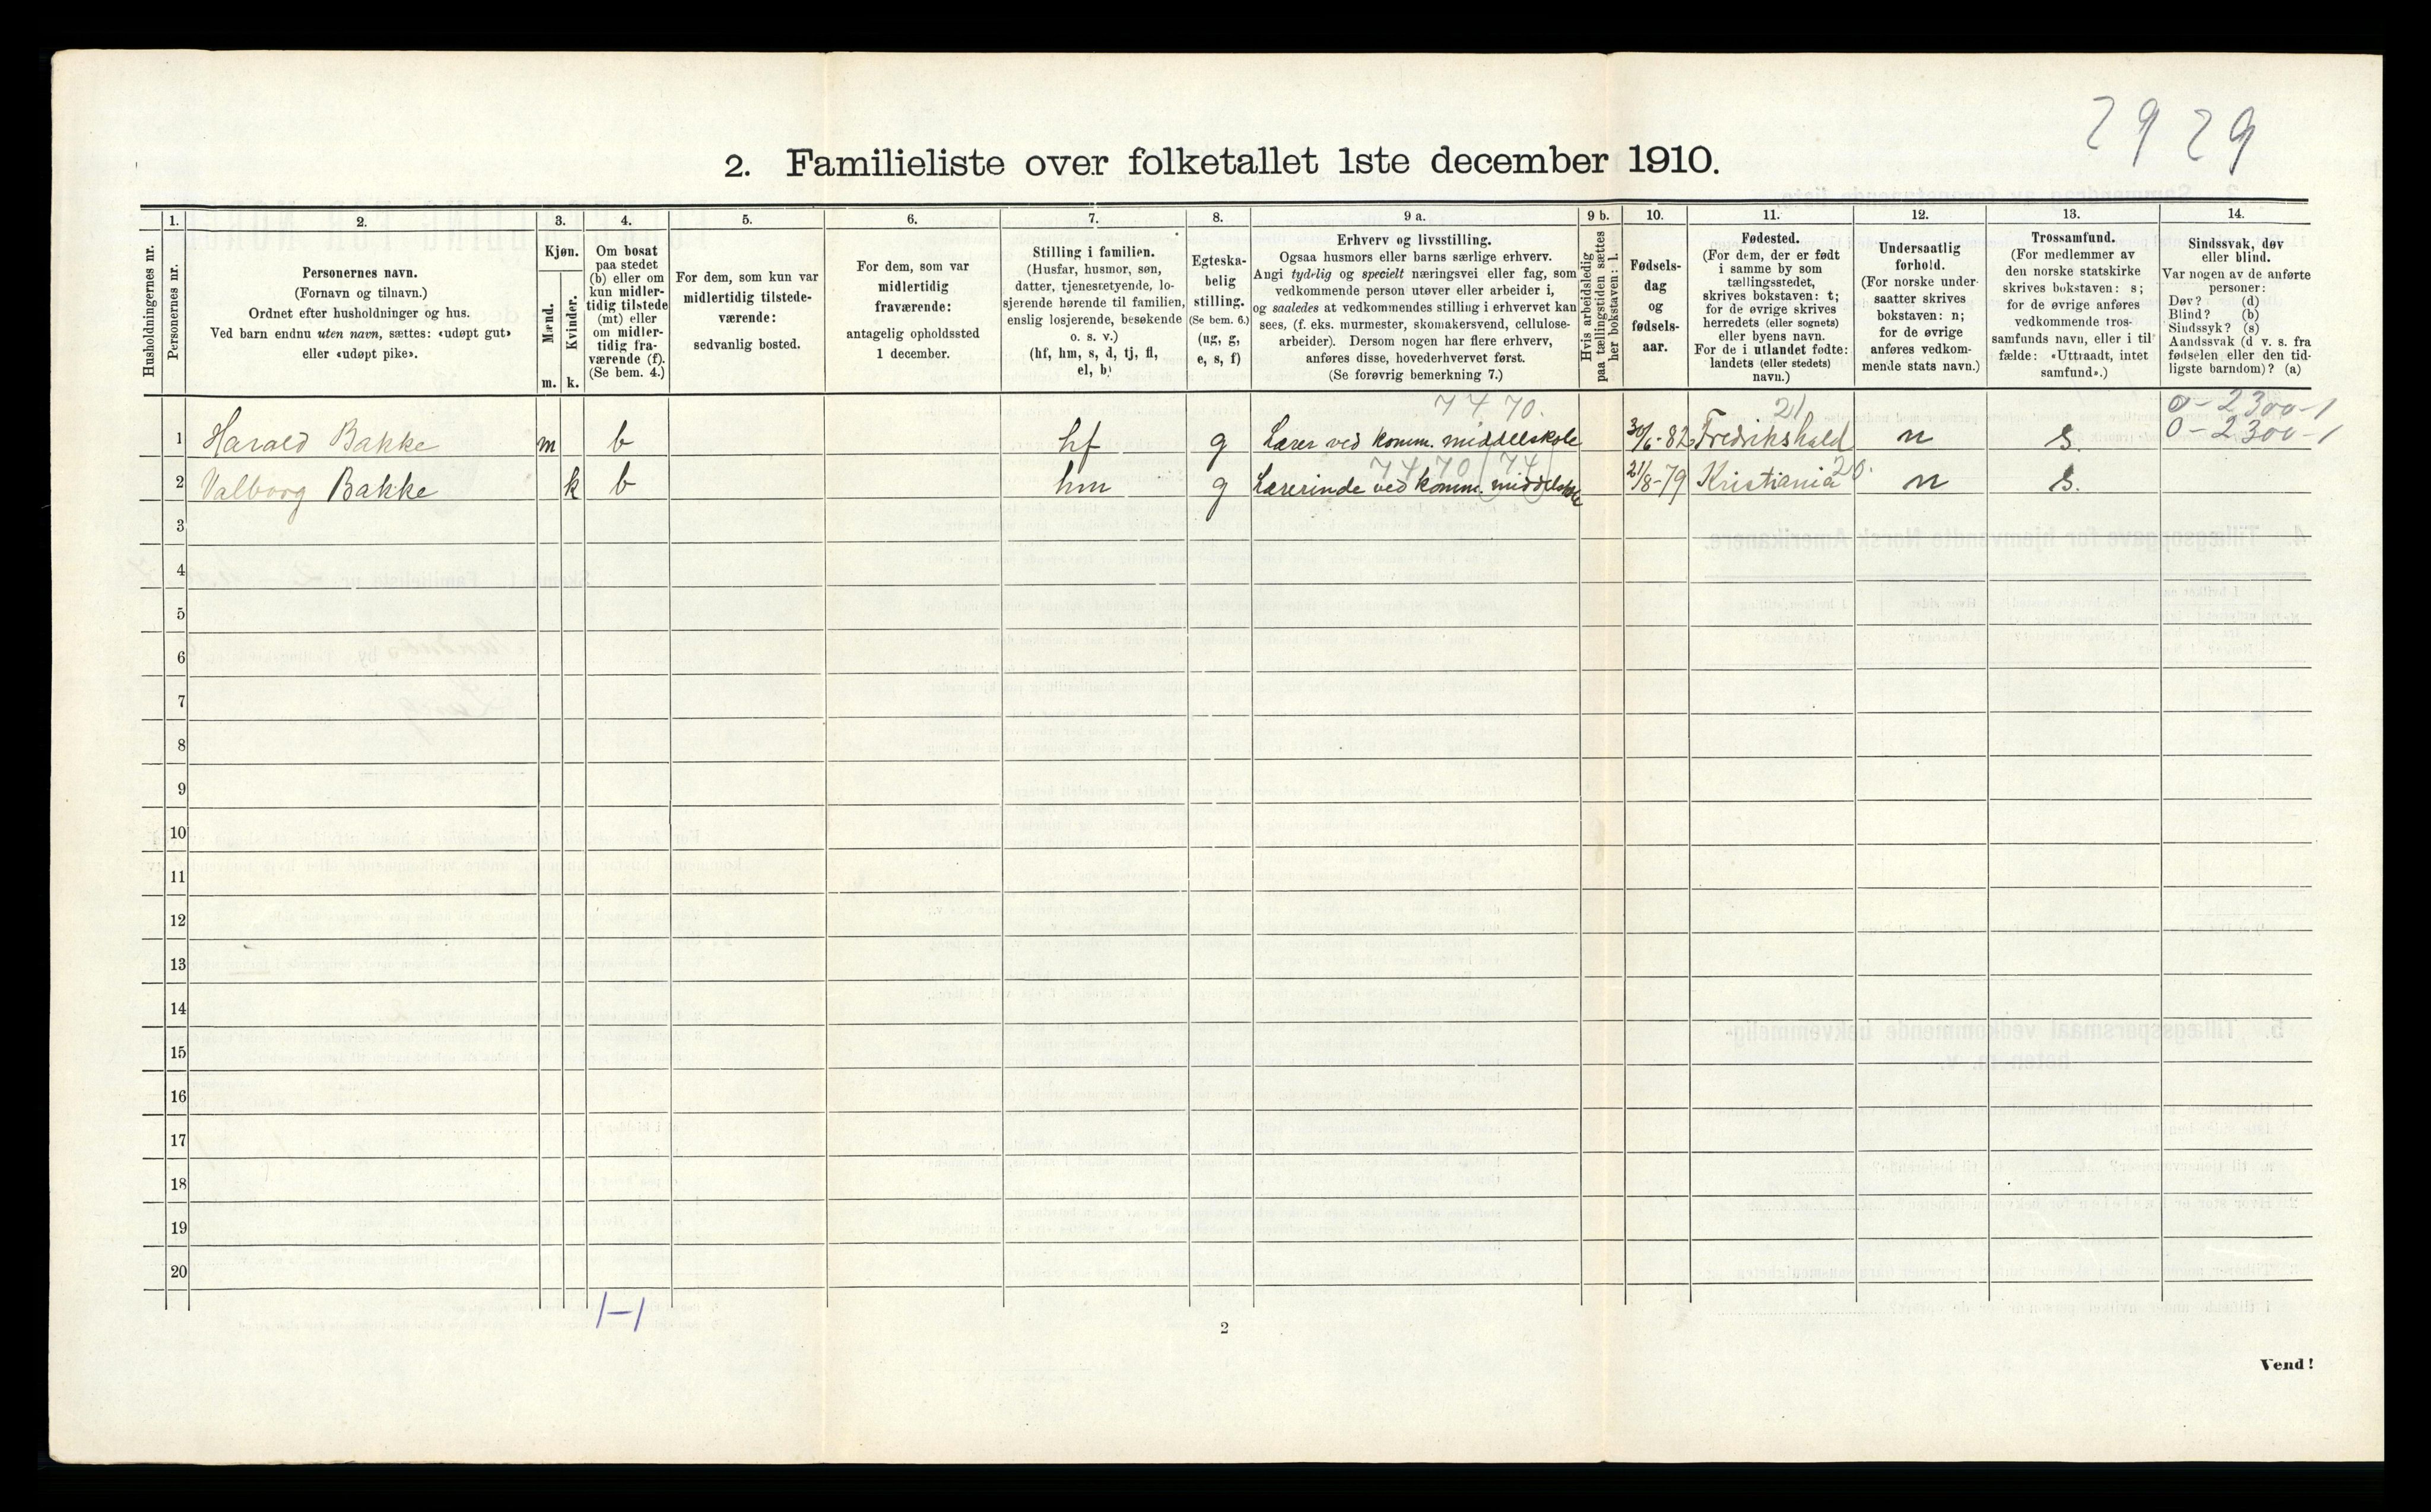 2929
2. Familieliste over folketallet 1ste december 1910.
Husholdningernes nr.
1.
Personernes nr.
2.
Personernes navn.
(Fornavn og tilnavn.)
Ordnet efter husholdninger og hus.
Ved barn endnu uten navn, sættes: «udøpt gut»
eller «udøpt pike».
3.
Kjøn.
Mænd.
m.
Kvinder.
k.
4.
Om bosat
paa stedet
(b) eller om
kun midler-
tidig tilstede
(mt) eller
om midler-
tidig fra-
værende (f).
(Se bem. 4.)
5.
For dem, som kun var
midlertidig tilstede-
værende:
sedvanlig bosted.
6.
For dem, som var
midlertidig
fraværende:
antagelig opholdssted
1 december.
7.
Stilling i familien.
(Husfar, husmor, søn,
datter, tjenestetyende, lo-
sjerende hørende til familien,
enslig losjerende, besøkende
o. s. v.)
(hf, hm, s, d, tj, fl,
el, b)
8.
Egteska-
belig
stilling.
(Se bem. 6.)
(ug, g,
e, s, f)
9 a.
Erhverv og livsstilling.
Ogsaa husmors eller barns særlige erhverv.
Angi tydelig og specielt næringsvei eller fag, som
vedkommende person utøver eller arbeider i,
og saaledes at vedkommendes stilling i erhvervet kan
sees, (f. eks. murmester, skomakersvend, cellulose-
arbeider). Dersom nogen har flere erhverv,
anføres disse, hovederhvervet først.
(Se forøvrig bemerkning 7.)
9 b.
Hvis arbeidsledig
paa tællingstiden sættes
her bokstaven: l.
10.
Fødsels-
dag
og
fødsels-
aar.
11.
Fødested.
(For dem, der er født
i samme by som
tællingsstedet,
skrives bokstaven: t;
for de øvrige skrives
herredets (eller sognets)
eller byens navn.
For de i utlandet fødte:
landets (eller stedets)
navn.)
12.
Undersaatlig
forhold.
(For norske under-
saatter skrives
bokstaven: n;
for de øvrige
anføres vedkom-
mende stats navn.)
13.
Trossamfund.
(For medlemmer av
den norske statskirke
skrives bokstaven: s;
for de øvrige anføres
vedkommende tros-
samfunds navn, eller i til
fælde: «Uttraadt, intet
samfund».)
14.
Sindssvak, døv
eller blind.
Var nogen av de anførte
personer:
Døv? (d)
Blind? (b)
Sindssyk? (s)
Aandssvak (d v. s. fra
fødselen eller den tid-
ligste barndom)? (a)
7470. 21 0-2300-1
1 Harald Bakke m b hf g Lærer ved komm. middelskole 30/6-82 Fredrikshald n s. 0-2300-1
7470 (74) 20.
2 Valborg Bakke k b hm g Lærerinde ved komm. middelskole 21/8-79 Kristiania n s.
3
4
5
6
7
8
9
10
11
12
13
14
15
16
17
18
19
20
1-1
2
Vend!